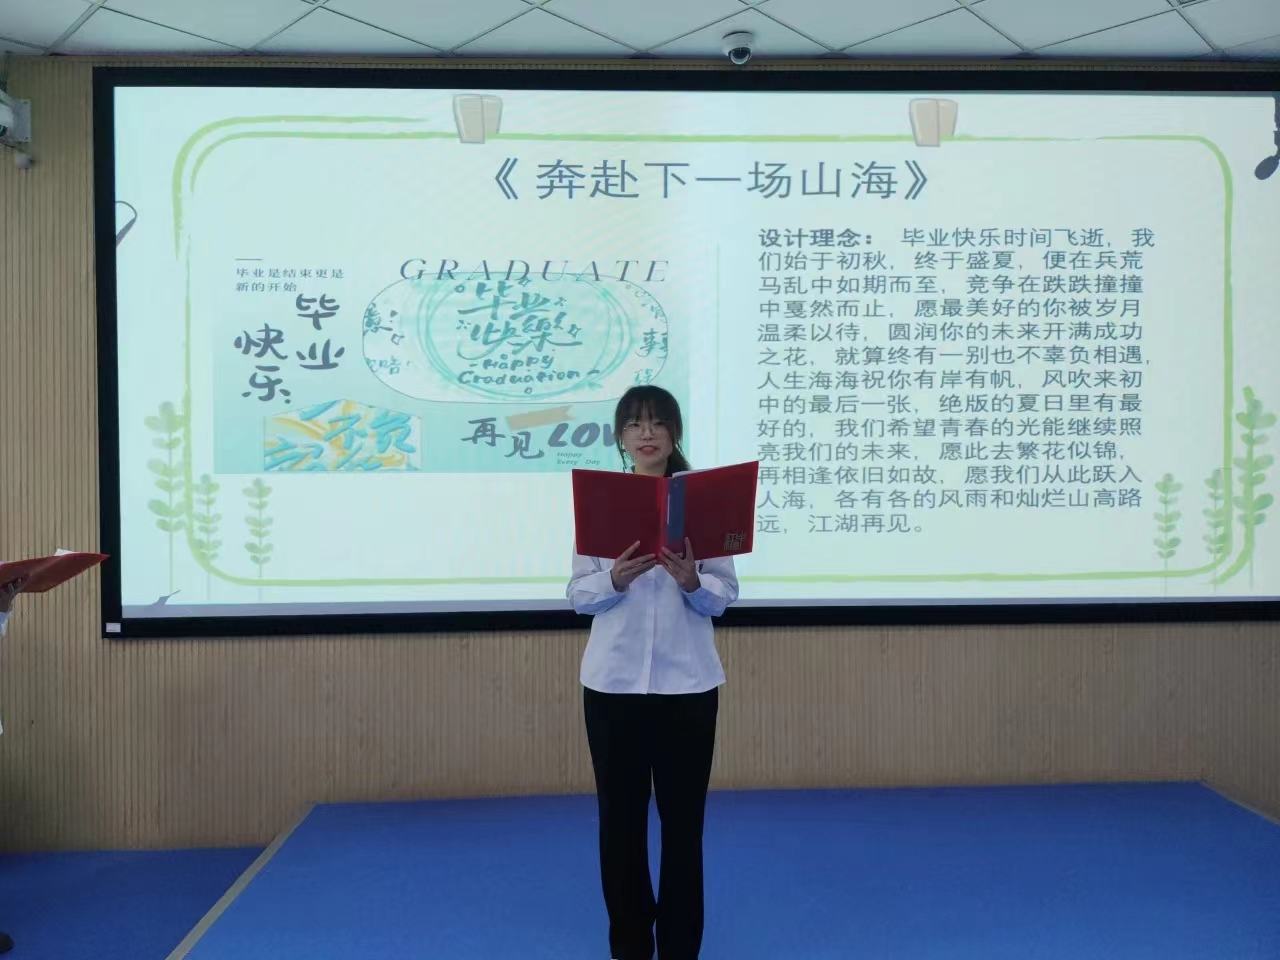 《奔赴下一场山海》
毕业是结束更是
新的开始
GRADUATE
毕业
快乐
毕业
快樂
-Happy
Graduation-
事
不负
再见
LOV
Happy
Every Day
设计理念： 毕业快乐时间飞逝，我
们始于初秋，终于盛夏，便在兵荒
马乱中如期而至，竞争在跌跌撞撞
中戛然而止，愿最美好的你被岁月
温柔以待，圆润你的未来开满成功
之花，就算终有一别也不辜负相遇，
人生海海祝你有岸有帆，风吹来初
中的最后一张，绝版的夏日里有最
好的，我们希望青春的光能继续照
亮我们的未来，愿此去繁花似锦，
再相逢依旧如故，愿我们从此跃入
人海，各有各的风雨和灿烂山高路
远，江湖再见。